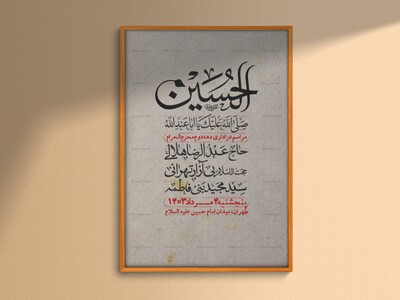 الحسین
صلی الله علیک یا ابا عبدالله
مراسم عزاداری دهه دوم محرم الحرام
حاج عبدالرضا هلالی
حجت الاسلام بی آزار تهرانی
سید مجید بنی فاطمه
پنجشنبه ۴ مرداد ۱۴۰۳
تهران، میدان امام حسین علیه السلام